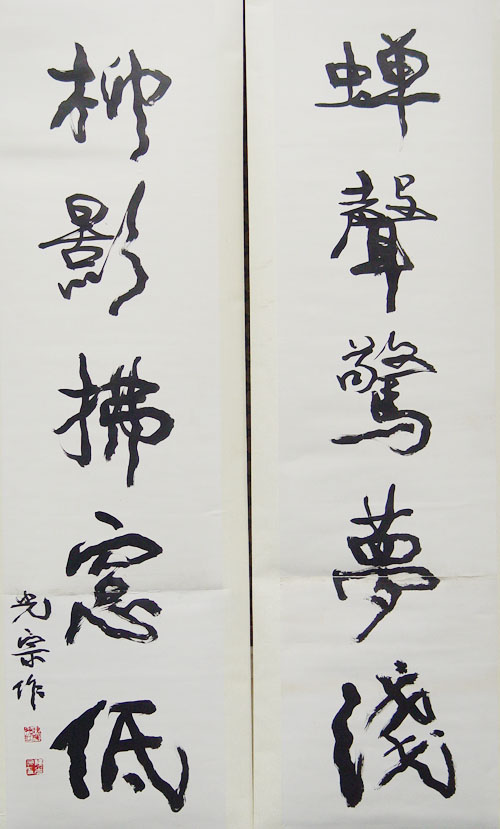 蝉聲驚夢淺
柳影拂窓低
光宗作